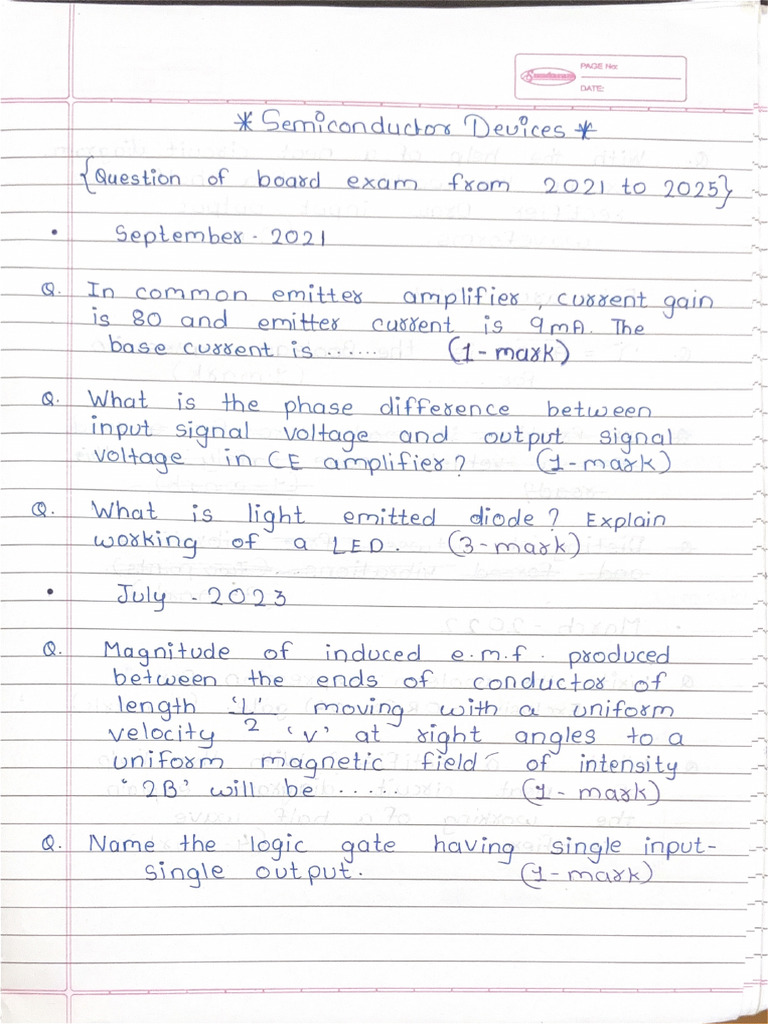 Sundaram
PAGE No:
DATE:
* Semiconductor Devices *
{Question of board exam from 2021 to 2025}
• September - 2021
Q. In common emitter amplifier, current gain
is 80 and emitter current is 9mA. The
base current is ...... (1-mark)
Q. What is the phase difference between
input signal voltage and output signal
voltage in CE amplifier? (1-mark)
Q. What is light emitted diode? Explain
working of a LED. (3-mark)
• July - 2023
Q. Magnitude of induced e.m.f. produced
between the ends of conductor of
length 'L'/2 moving with a uniform
velocity 'v' at right angles to a
uniform magnetic field of intensity
'2B' will be ...... (1-mark)
Q. Name the logic gate having single input-
single output. (1-mark)